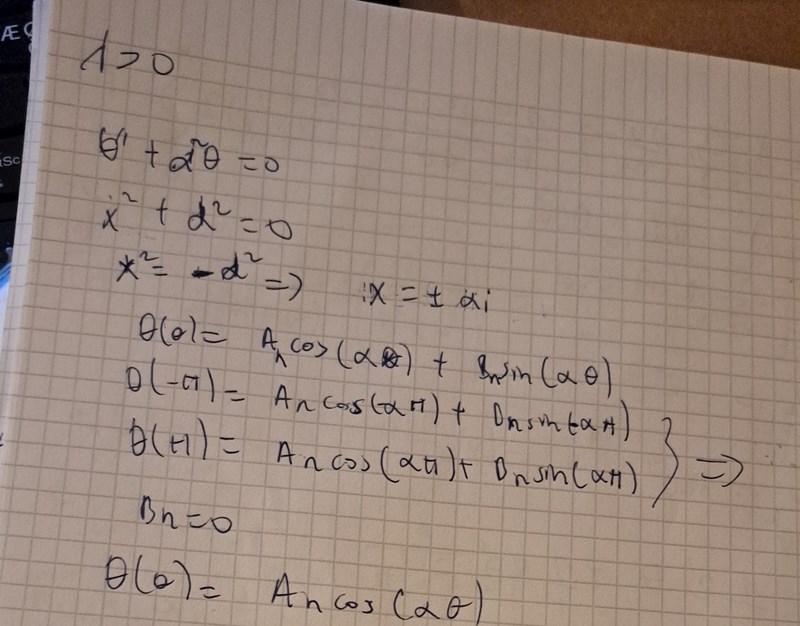 λ > 0
θ'' + α²θ = 0
x² + α² = 0
x² = -α² => x = ± αi
θ(θ) = An cos(αθ) + Bn sin(αθ)
θ(-π) = An cos(-απ) + Bn sin(-απ)
θ(π) = An cos(απ) + Bn sin(απ) } =>
Bn = 0
θ(θ) = An cos(αθ)